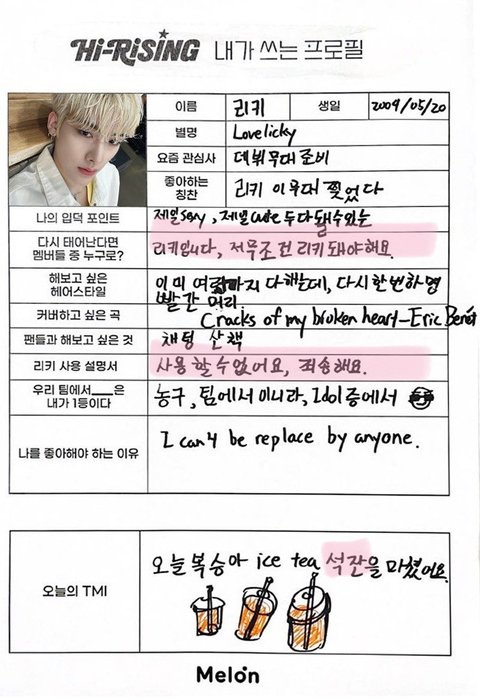 Hi-RiSiNG 내가 쓰는 프로필
이름 리키 생일 2004/05/20
별명 Lovelicky
요즘 관심사 데뷔무대 준비
좋아하는 칭찬 리키 이 무대 찢었다
나의 입덕 포인트 제일 sexy, 제일 cute 두다 될 수 있는
다시 태어난다면 멤버들 중 누구로? 리키입니다, 저 무조건 리키 돼야해요.
해보고 싶은 헤어스타일 이미 여러가지 다 해봤는데, 다시 한번 하면
빨간 머리
커버하고 싶은 곡 Cracks of my broken heart - Eric Benét
팬들과 해보고 싶은 것 채팅 산책
리키 사용 설명서 사용할 수 없어요, 죄송해요.
우리 팀에서___은 내가 1등이다 농구, 팀에서 아니라, Idol 중에서
나를 좋아해야 하는 이유 I can't be replace by anyone.
오늘의 TMI 오늘 복숭아 ice tea 석잔을 마셨어요.
Melon